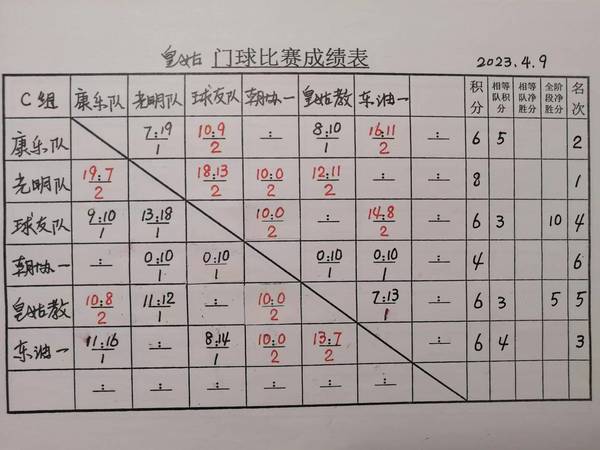 皇姑 门球比赛成绩表 2023.4.9
C组 康乐队 光明队 球友队 朝体一 皇姑教 东油一 积分 相等队积分 相等队净胜分 全阶段净胜分 名次
康乐队 7:19 10:9 : 8:10 16:11 : 6 5 2
1 2 1 2
光明队 19:7 18:13 10:0 12:11 : : 8 1
2 2 2 2
球友队 9:10 13:18 10:0 : 14:8 : 6 3 10 4
1 1 2 2
朝体一 : 0:10 0:10 0:10 0:10 : 4 6
1 1 1 1
皇姑教 10:8 11:12 : 10:0 7:13 : 6 3 5 5
2 1 2 1
东油一 11:16 : 8:14 10:0 13:7 : 6 4 3
1 1 2 2
: : : : : :